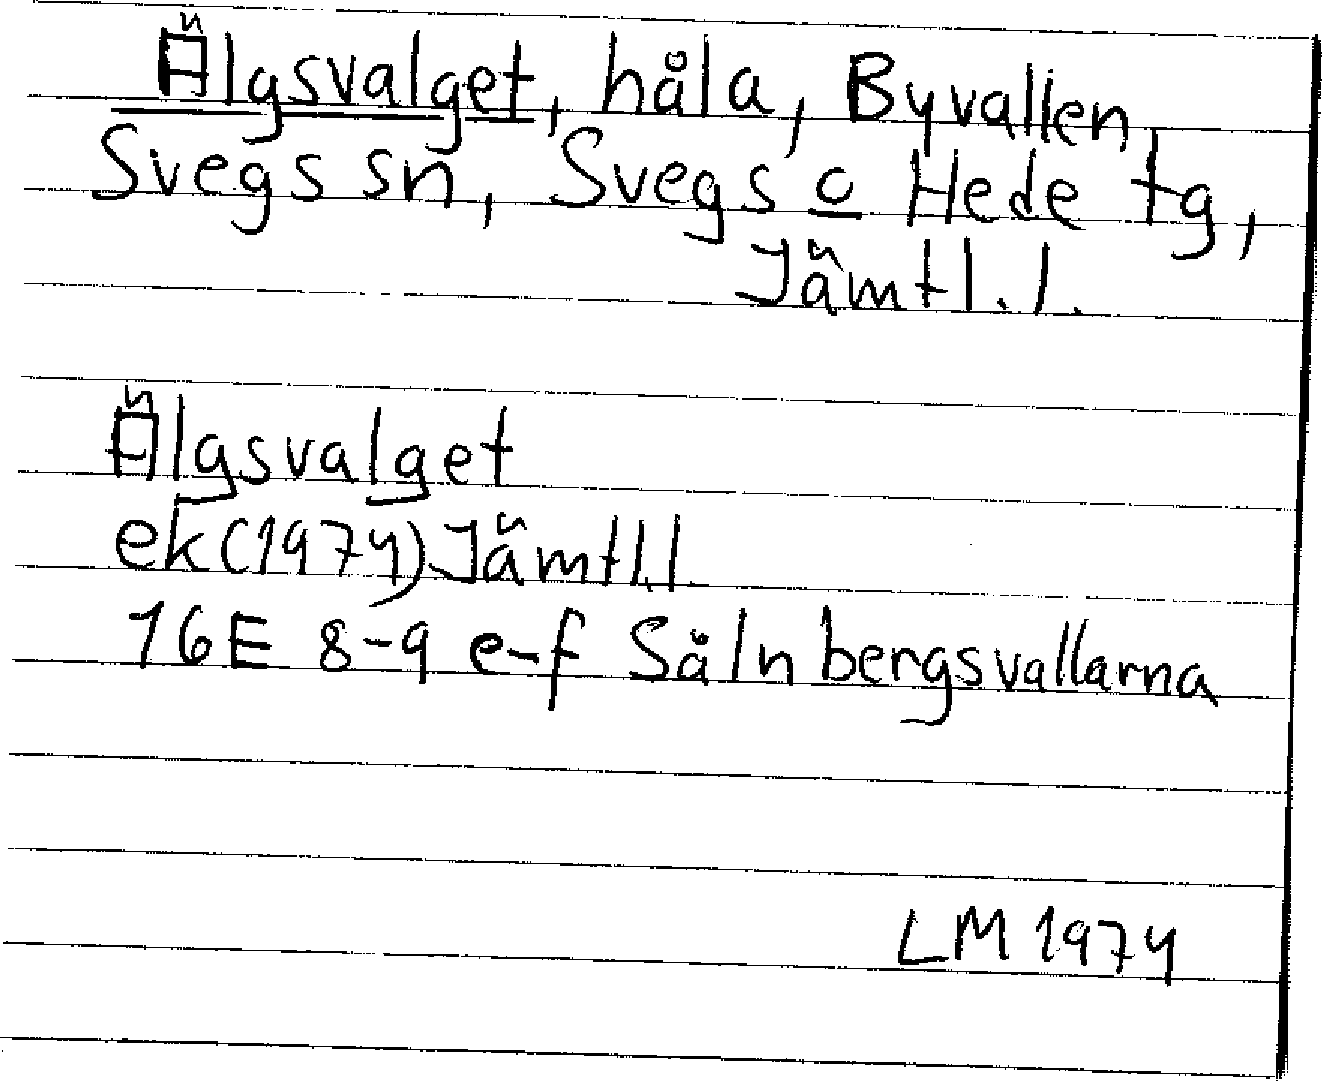 Älgsvalget, håla, Byvallen,
Svegs sn, Svegs o Hede tg,
Jämtl. l.
Älgsvalget
ek (1974) Jämtl.l.
16E 8-9 e-f Sålnbergsvallarna
LM 1974